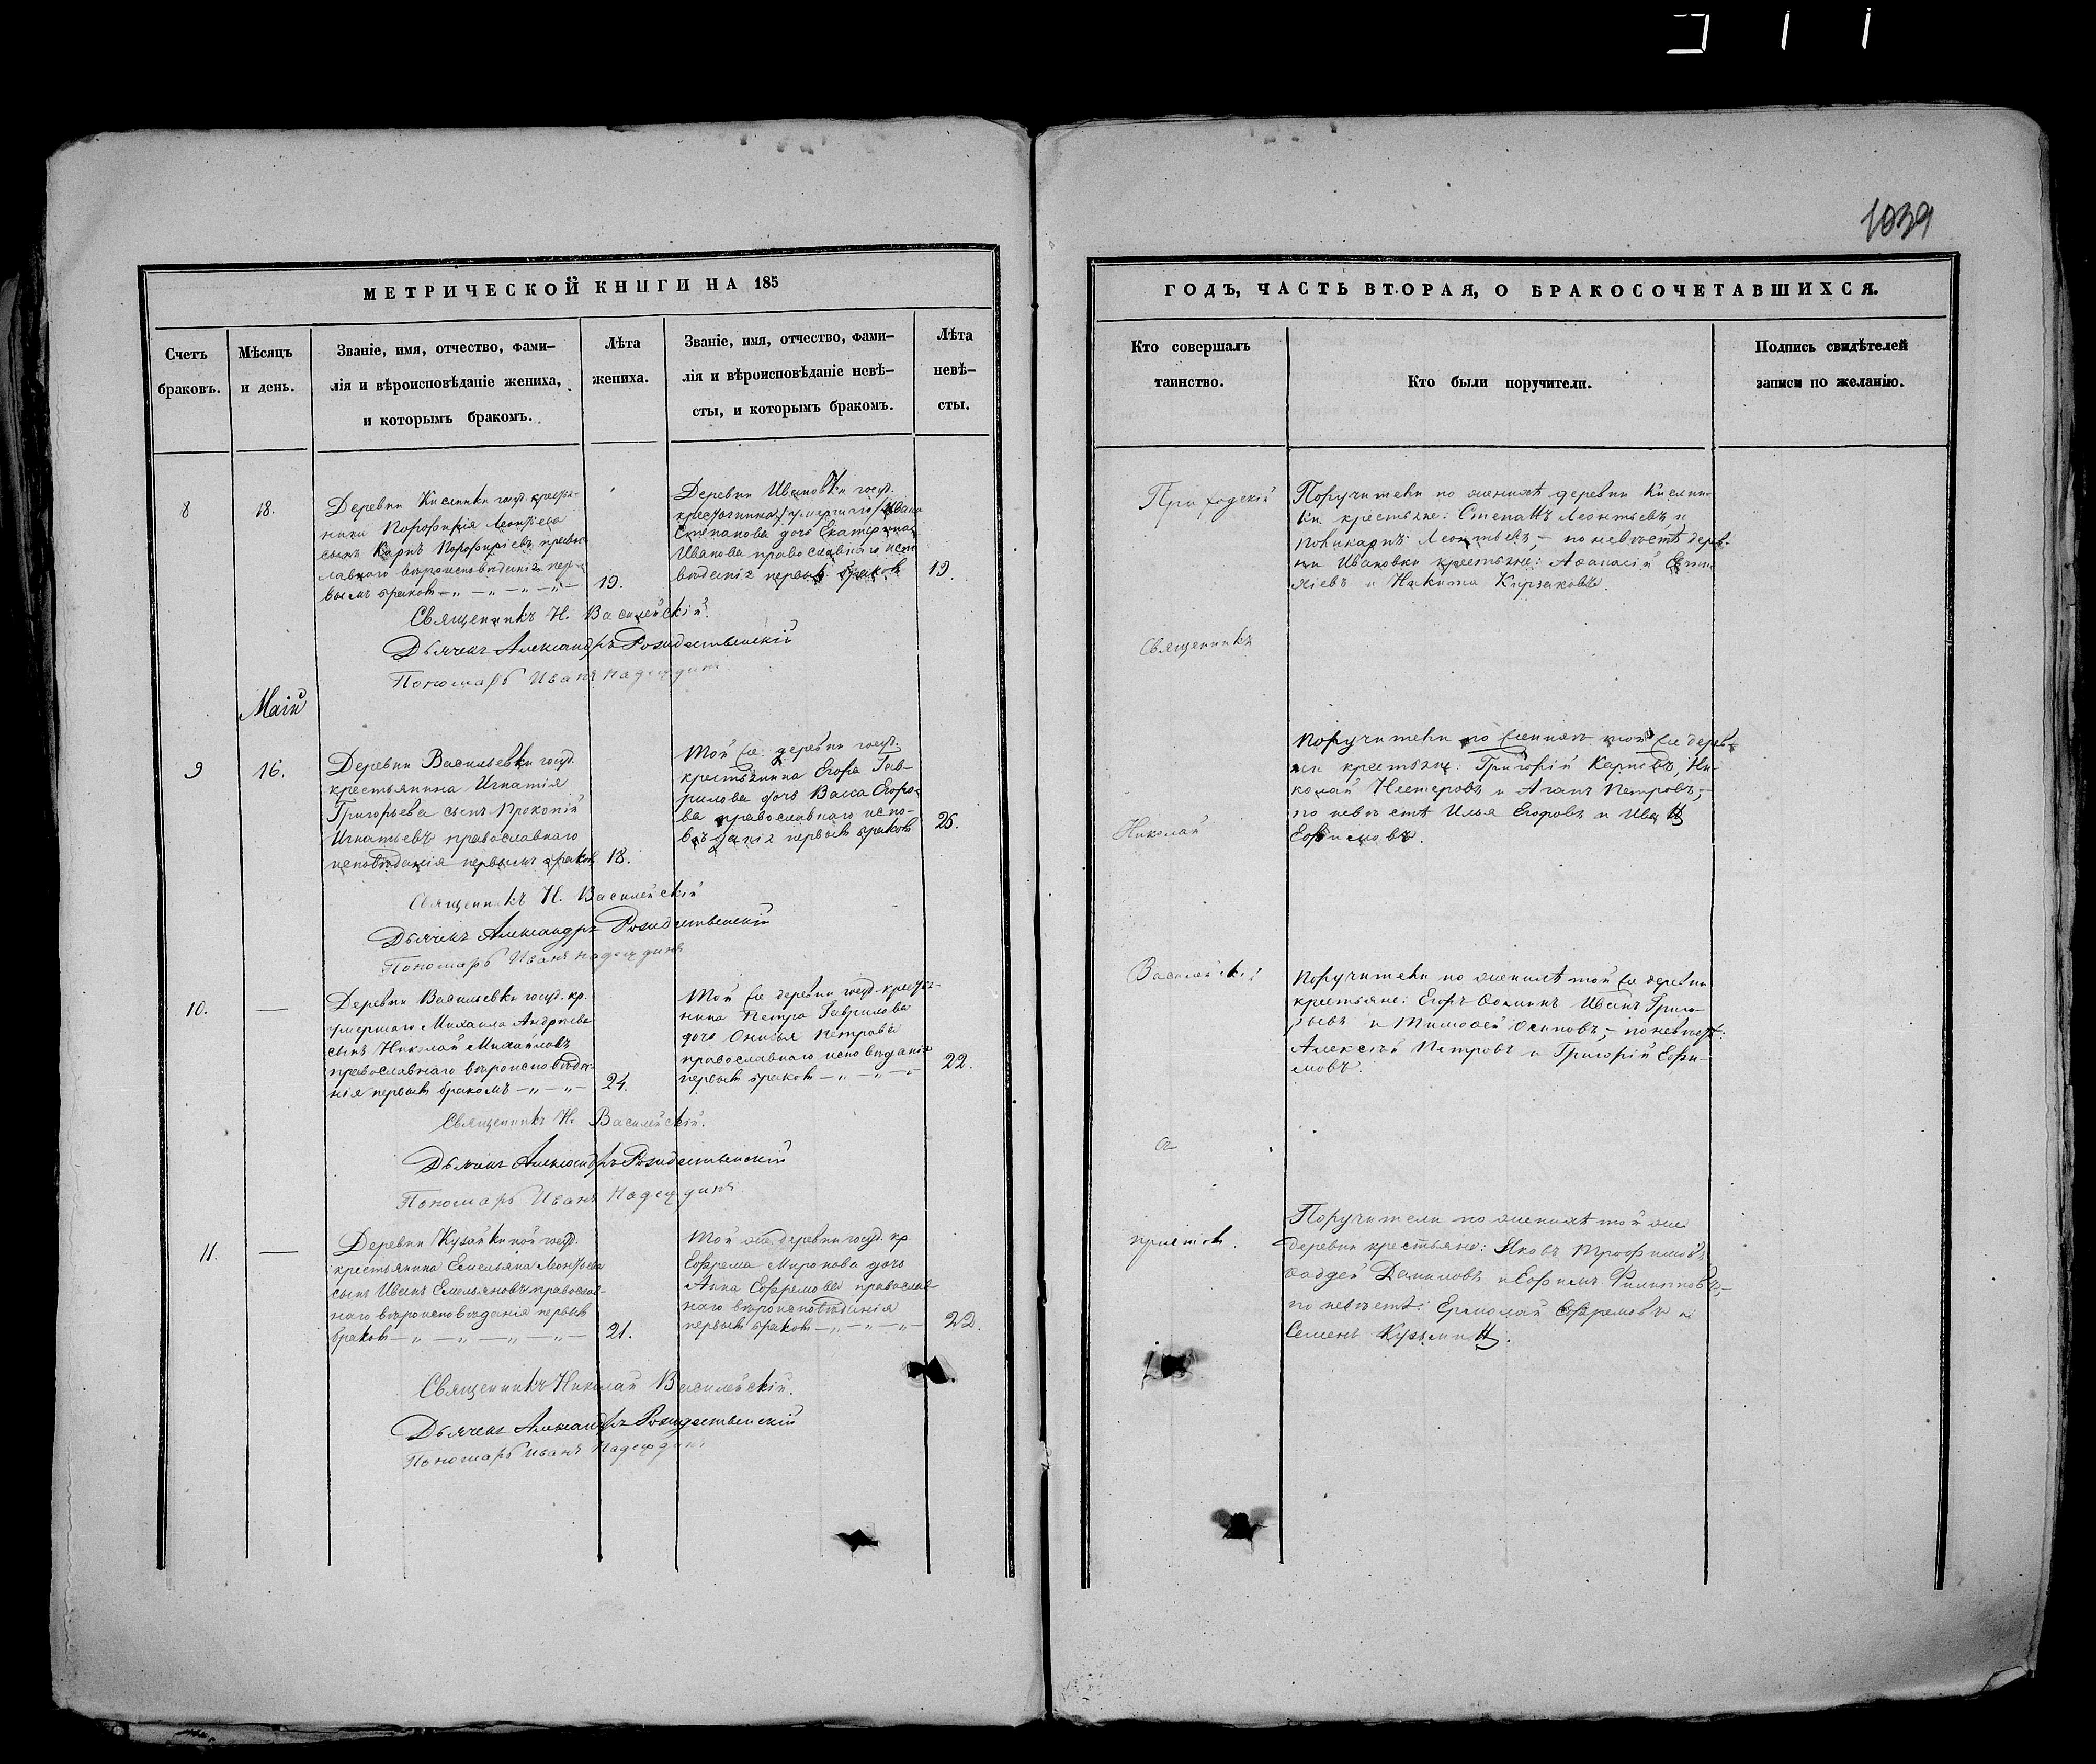 1039
МЕТРИЧЕСКОЙ КНИГИ НА 185
Счетъ
браковъ.
Мѣсяцъ
и день.
Званіе, имя, отчество, фами-
лія и вѣроисповѣданіе жениха,
и которымъ бракомъ.
Лѣта
жениха.
Званіе, имя, отчество, фами-
лія и вѣроисповѣданіе невѣ-
сты, и которымъ бракомъ.
Лѣта
невѣ-
сты.
8
18.
Деревни Кислинки госуд. крестья-
нина Порфирія Леонтьева
сынъ Карпъ Порфиріевъ право-
славнаго вѣроисповѣданія пер-
вымъ бракомъ
19.
Деревни Ивановки госуд.
крестьянина умершаго Ивана
Степанова дочь Екатерина
Иванова православнаго испо-
вѣданія первымъ бракомъ
19.
Священникъ Н. Василейскій.
Дьячекъ Александръ Рождественскій
Пономарь Иванъ Надеждинъ
Маій
9
16.
Деревни Васильевки госуд.
крестьянина Игнатія
Григорьева сынъ Прокопій
Игнатьевъ православнаго
исповѣданія первымъ бракомъ
18.
Той же деревни госуд.
крестьянина Егора Гав-
рилова дочь Васса Егоро-
ва православнаго испо-
вѣданія первымъ бракомъ
26.
Священникъ Н. Василейскій
Дьячекъ Александръ Рождественскій
Пономарь Иванъ Надеждинъ
10.
—
Деревни Васильевки госуд. кр.
умершаго Михаила Андреева
сынъ Николай Михайловъ
православнаго вѣроисповѣда-
нія первымъ бракомъ
24.
Той же деревни госуд. крестья-
нина Петра Гаврилова
дочь Онисья Петрова
православнаго исповѣданія
первымъ бракомъ
22.
Священникъ Н. Василейскій.
Дьячекъ Александръ Рождественскій
Пономарь Иванъ Надеждинъ
11.
—
Деревни госуд.
крестьянина Емельяна Леонтьева
сынъ Иванъ Емельяновъ православ-
наго вѣроисповѣданія первымъ
бракомъ
21.
Той же деревни госуд. кр.
Ефрема Миронова дочь
Анна Ефремова православ-
наго вѣроисповѣданія
первымъ бракомъ
22.
Священникъ Николай Василейскій.
Дьячекъ Александръ Рождественскій
Пономарь Иванъ Надеждинъ
ГОДЪ, ЧАСТЬ ВТОРАЯ, О БРАКОСОЧЕТАВШИХСЯ.
Кто совершалъ
таинство.
Кто были поручители.
Подпись свидѣтелей
записи по желанію.
Приходскій
Священникъ
Николай
Василейскій
съ
Поручители по женихѣ деревни Кислин-
ки крестьяне: Степанъ Леонтьевъ и
Поликарпъ Леонтьевъ, – по невѣстѣ дерев-
ни Ивановки крестьяне: Аѳанасій
и Никита Кирзаковъ.
Поручители по женихѣ той же дерев-
ни крестьяне: Григорій Карповъ, Ни-
колай Нестеровъ и Агапъ Петровъ, –
по невѣстѣ Илья Егоровъ и Иванъ
Ефимовъ.
Поручители по женихѣ той же деревни
крестьяне: Егоръ Ѳоминъ Иванъ Григо-
рьевъ и Тимоѳей Осиповъ, – по невѣстѣ:
Алексѣй Петровъ и Григорій Ефи-
мовъ.
Поручители по женихѣ той же
деревни крестьяне: Яковъ Трофимовъ
Ѳаддей Даниловъ и Ефимъ Филиповъ, –
по невѣстѣ: Ермолай Ефремовъ и
Семенъ Кузьминъ.